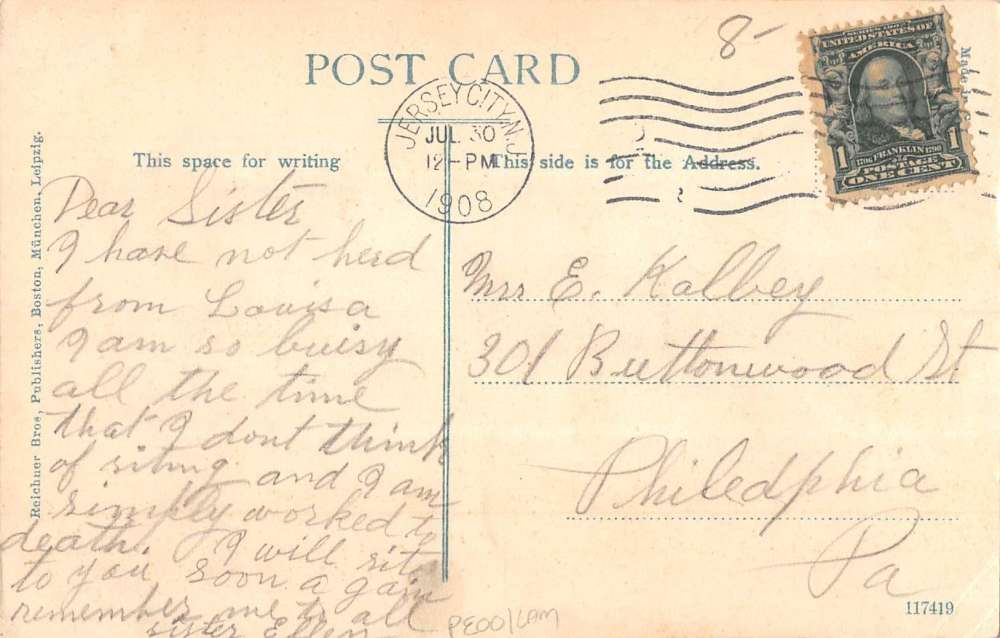 POST CARD
8-
JERSEY CITY, N.J.
JUL 30
12-PM
1908
SERIES 1902
UNITED STATES OF
AMERICA
1 1706 FRANKLIN 1790 1
POSTAGE
ONE CENT
Made in
This space for writing
This side is for the Address.
Reichner Bros, Publishers, Boston, München, Leipzig.
Dear Sister
I have not herd
from Louisa
I am so buisy
all the time
that I dont think
of riting and I am
simply worked to
death. I will rite
to you soon a gain
remember me to all
sister Ellen
Mrs E. Kalbey
301 Buttonwood St
Philedphia
Pa
117419
PE001LAM